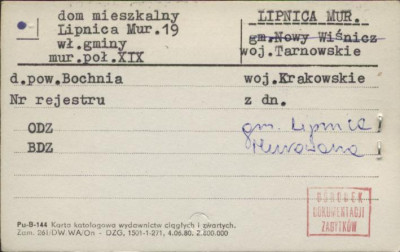 dom mieszkalny
Lipnica Mur.19
wł.gminy
mur.poł.XIX
LIPNICA MUR.
gm.Nowy Wiśnicz
woj.Tarnowskie
d.pow.Bochnia woj.Krakowskie
Nr rejestru z dn.
ODZ gm. Lipnica
BDZ Murowana
OŚRODEK
DOKUMENTACJI
ZABYTKÓW
Pu-B-144 Karta katalogowa wydawnictw ciągłych i zwartych.
Zam. 261/DW.WA/On - DZG, 1501-1-271, 4.06.80. 2.800.000